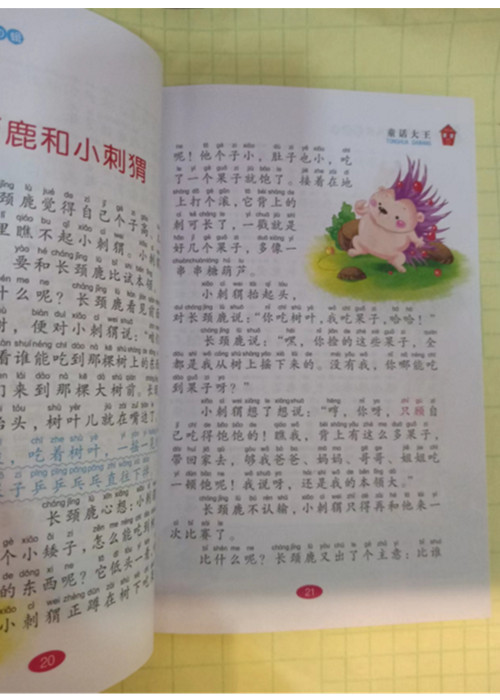 鹿和小刺猬
颈鹿觉得自己个子高
里瞧不起小刺猬。小刺
要和长颈鹿比试本领
什么呢？长颈鹿看见前面
树，便对小刺猬说：“咱
看谁能吃到那棵树上的
们来到那棵大树前。长颈
抬头，树叶儿就在嘴边了
，吃着树叶，一摇一晃
子乒乒乓乓直往下掉
长颈鹿心想：小刺猬
个小矮子，怎么能吃到树
的东西呢？它低头一看
小刺猬正蹲在树下吃
20
童话大王
TONGHUA DAWANG
呢！他个子小，肚子也小，吃
了一个果子就饱了。接着在地
上打个滚，它背上的
刺可长了，一戳就是
好几个果子，多像一
串串糖葫芦。
小刺猬抬起头，
对长颈鹿说：“你吃树叶，我吃果子，哈哈！”
长颈鹿说：“嘿，你捡的这些果子，全
都是我从树上摇下来的。没有我，你哪能吃
到果子呀？”
小刺猬想了想说：“哼，你呀，只顾自
己吃得饱饱的！瞧我，背上有这么多果子，
带回家去，够我爸爸、妈妈、哥哥、姐姐吃
一顿饱呢！我说呀，还是我的本领大。”
长颈鹿不认输，小刺猬只得再和他来一
次比赛了。
比什么呢？长颈鹿又出了个主意：比谁
21